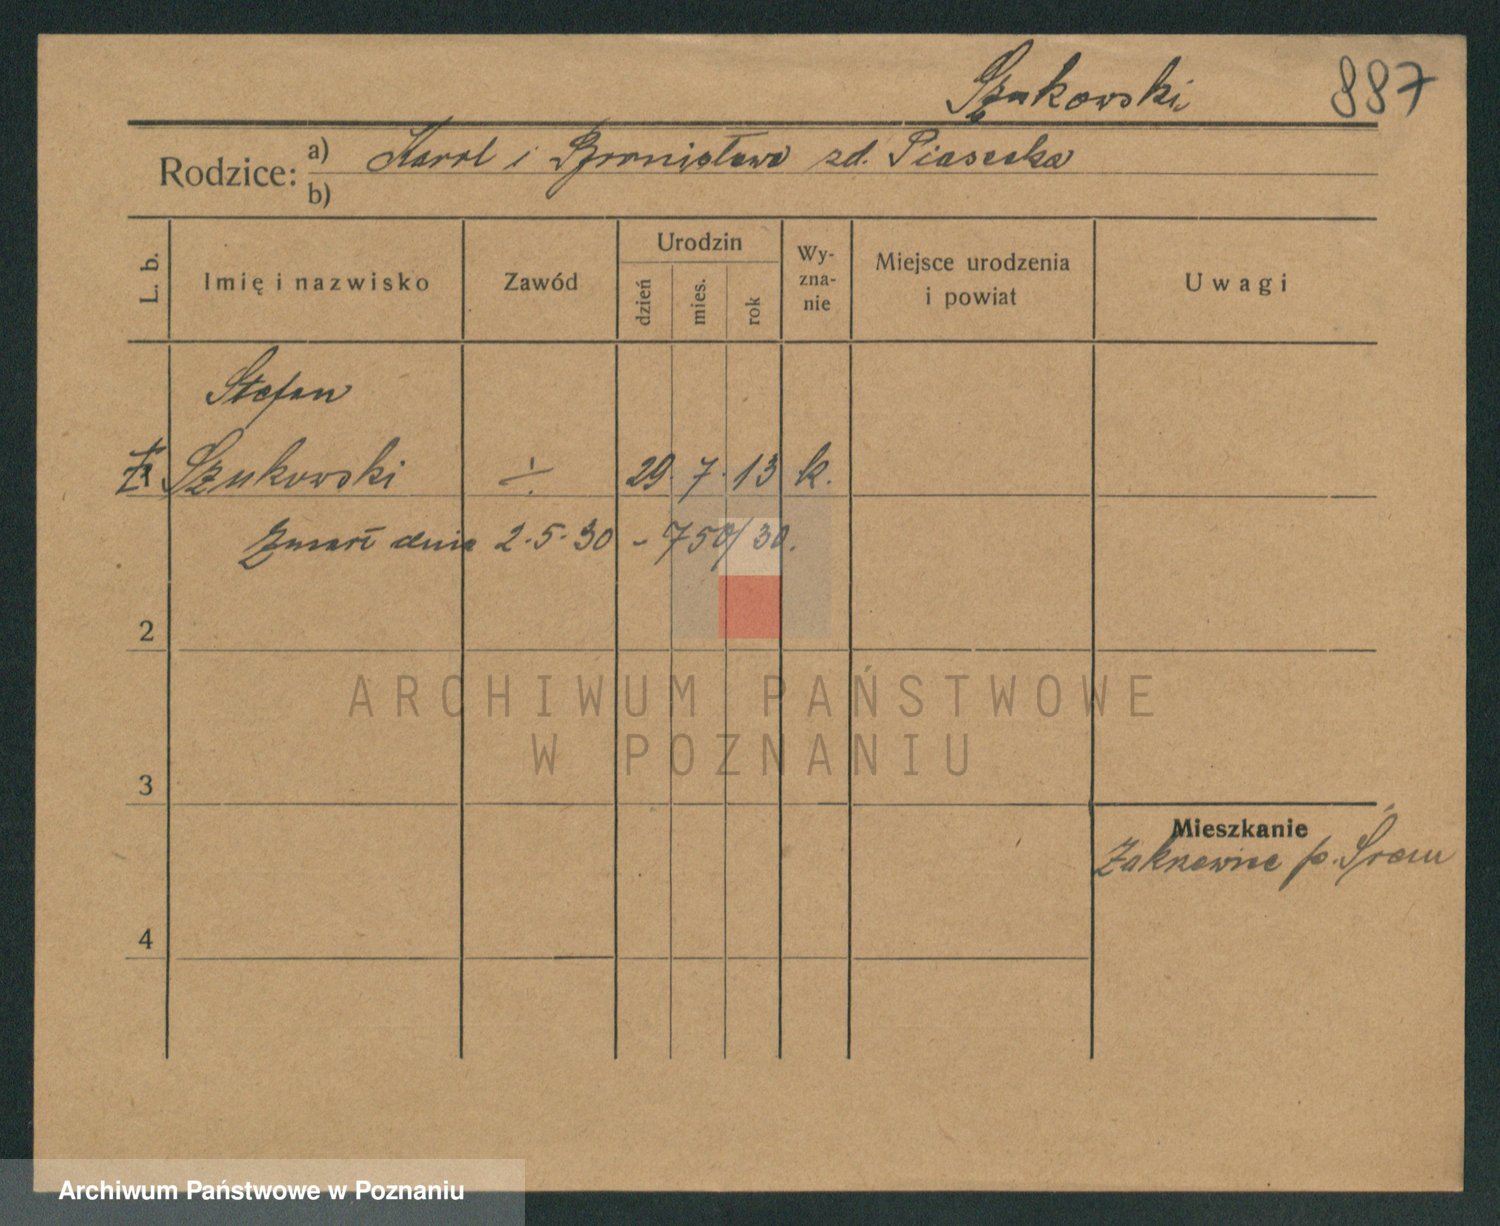 Szukowski 887
Rodzice: a) Karol i Bronisława zd. Piasecka
b)
L. b. Imię i nazwisko Zawód Urodzin dzień mies. rok Wyznanie Miejsce urodzenia i powiat Uwagi
Stefan
1 Szukowski ÷ 29. 7. 13 k.
Zmarł dnia 2.5.30 - 750/30.
2
ARCHIWUM PAŃSTWOWE
W POZNANIU
3
Mieszkanie
p. Śrem
4
Archiwum Państwowe w Poznaniu